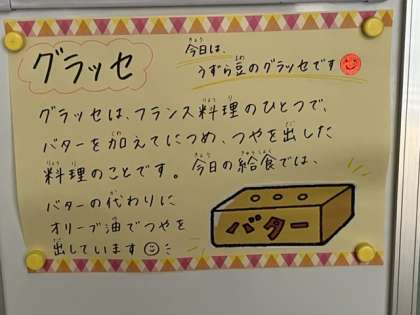 グラッセ
今日は、
うずら豆のグラッセです
グラッセは、フランス料理のひとつで、
バターを加えてにつめ、つやを出した
料理のことです。今日の給食では、
バターの代わりに
オリーブ油でつやを
出しています
バター